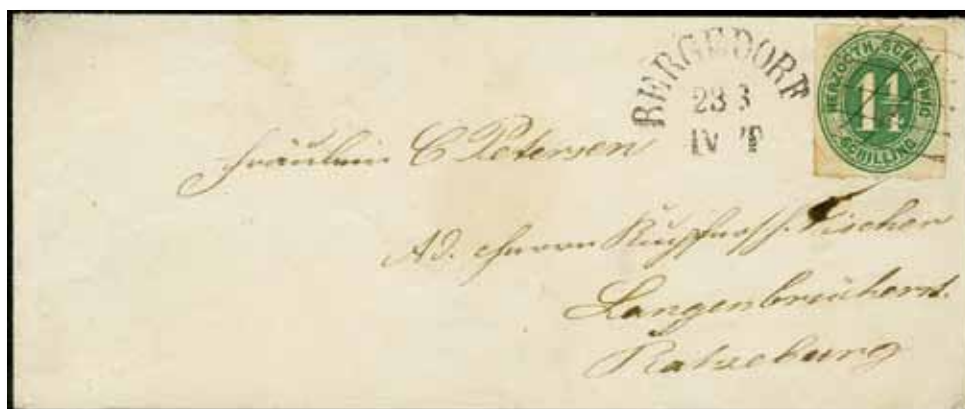 BERGEDORF
23 3
IV
HERZOGTH. SCHLESWIG
1¼
SCHILLING
Fräulein C Petersen
Ad. Herrn Fischer
Langenbrückerst.
Ratzeburg